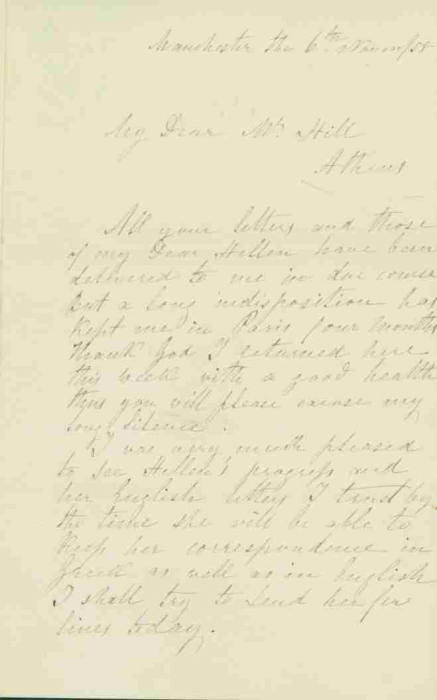 Manchester the 6th Novem/58
My Dear Mr Hill
Athens
All your letters and those
of my Dear Hellen have been
delivered to me in due course
but a long indisposition has
kept me in Paris four months
thank God I returned here
this week with a good health
thus you will please excuse my
long silence.
I was very much pleased
to see Hellen's progress and
her English letters I trust by
the time she will be able to
keep her correspondence in
Greek as well as in English
I shall try to send her few
lines today.